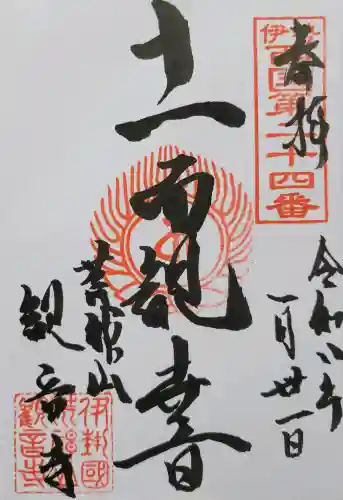 奉拝
伊賀
四国第二十四番
令和八年
一月廿一日
十一面観音
山
観音寺
伊賀國
観音寺